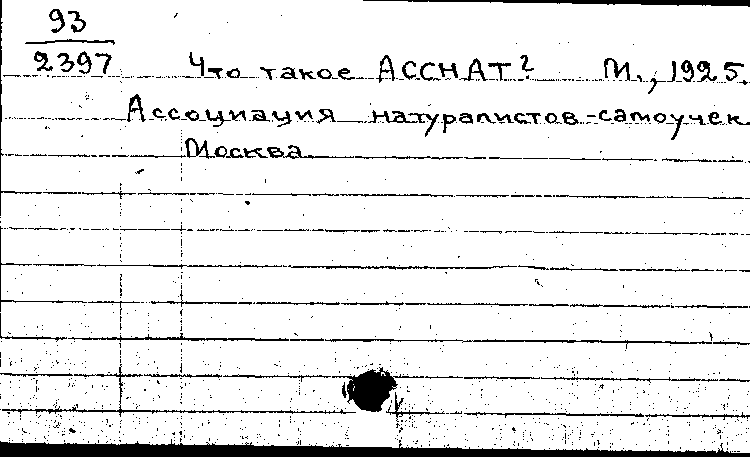 93
2397 Что такое АССНАТ? М., 1925.
Ассоциация натуралистов-самоучек.
Москва